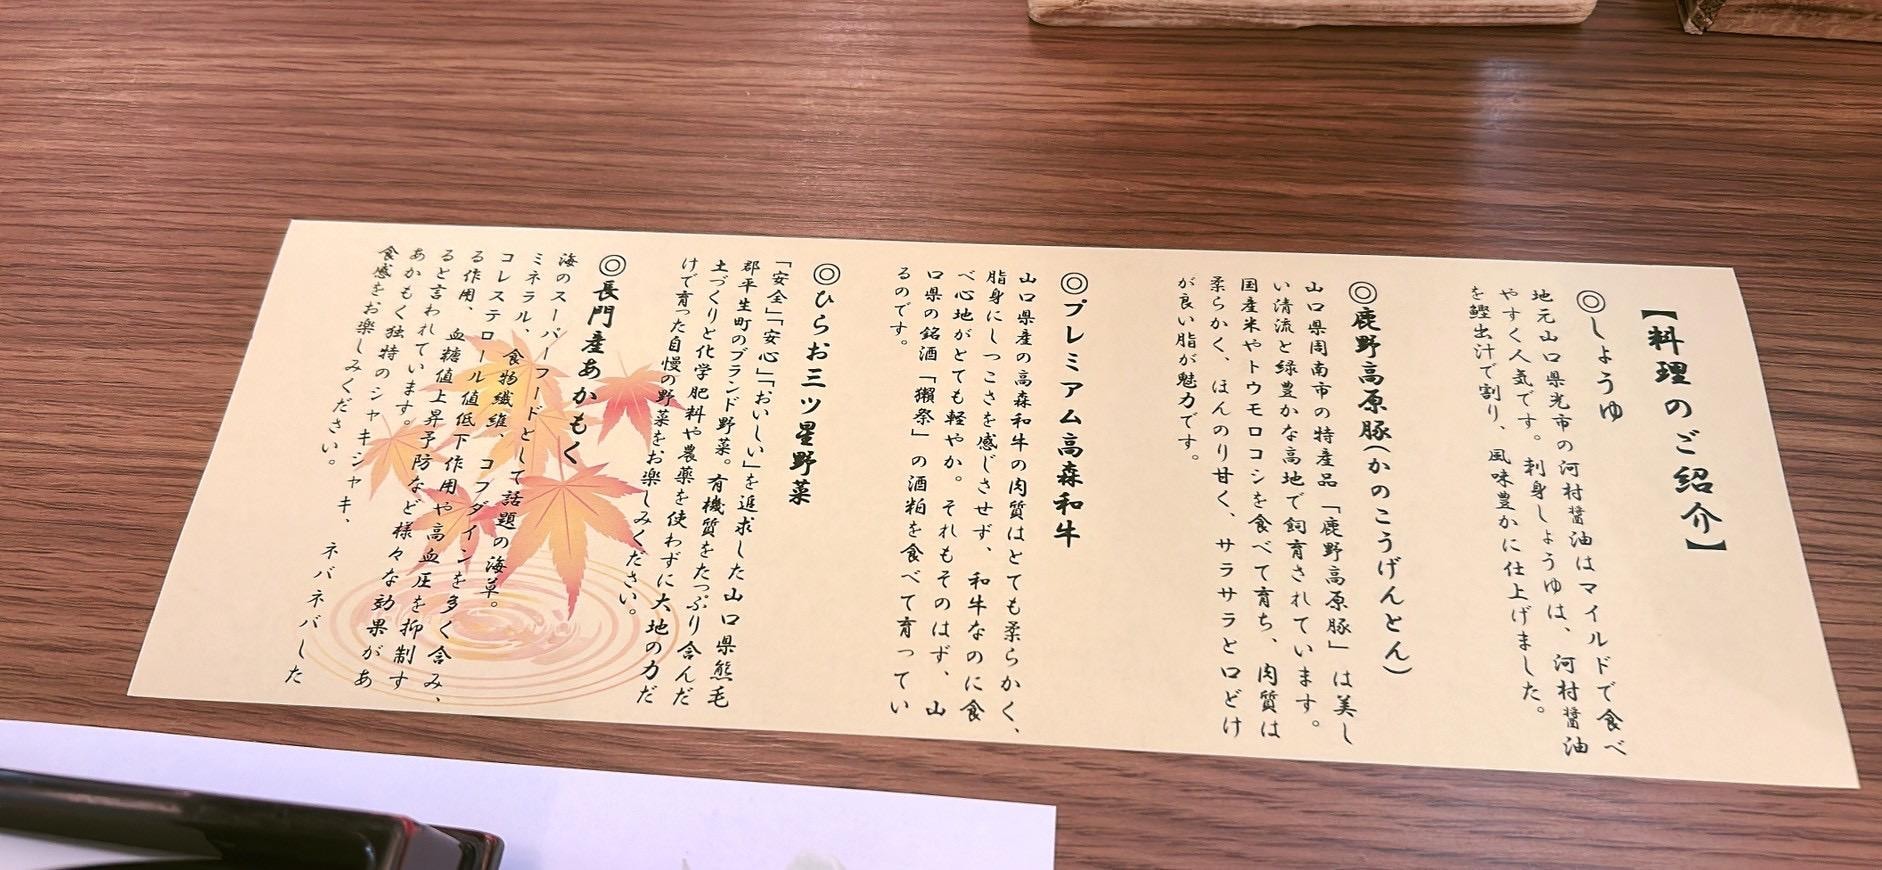 【料理のご紹介】
◎しょうゆ
地元山口県光市の河村醤油はマイルドで食べ
やすく人気です。刺身しょうゆは、河村醤油
を鰹出汁で割り、風味豊かに仕上げました。
◎鹿野高原豚(かのこうげんとん)
山口県周南市の特産品「鹿野高原豚」は美し
い清流と緑豊かな高地で飼育されています。
国産米やトウモロコシを食べて育ち、肉質は
柔らかく、ほんのり甘く、サラサラと口どけ
が良い脂が魅力です。
◎プレミアム高森和牛
山口県産の高森和牛の肉質はとても柔らかく、
脂身にしつこさを感じさせず、和牛なのに食
べ心地がとても軽やか。それもそのはず、山
口県の銘酒「獺祭」の酒粕を食べて育ってい
るのです。
◎ひらお三ツ星野菜
「安全」「安心」「おいしい」を追求した山口県熊毛
郡平生町のブランド野菜。有機質をたっぷり含んだ
土づくりと化学肥料や農薬を使わずに大地の力だ
けで育った自慢の野菜をお楽しみください。
◎長門産あかもく
海のスーパーフードとして話題の海草。
ミネラル、食物繊維、コフダインを多く含み、
コレステロール値低下作用や高血圧を抑制す
る作用、血糖値上昇予防など様々な効果があ
ると言われています。
あかもく独特のシャキシャキ、ネバネバした
食感をお楽しみください。